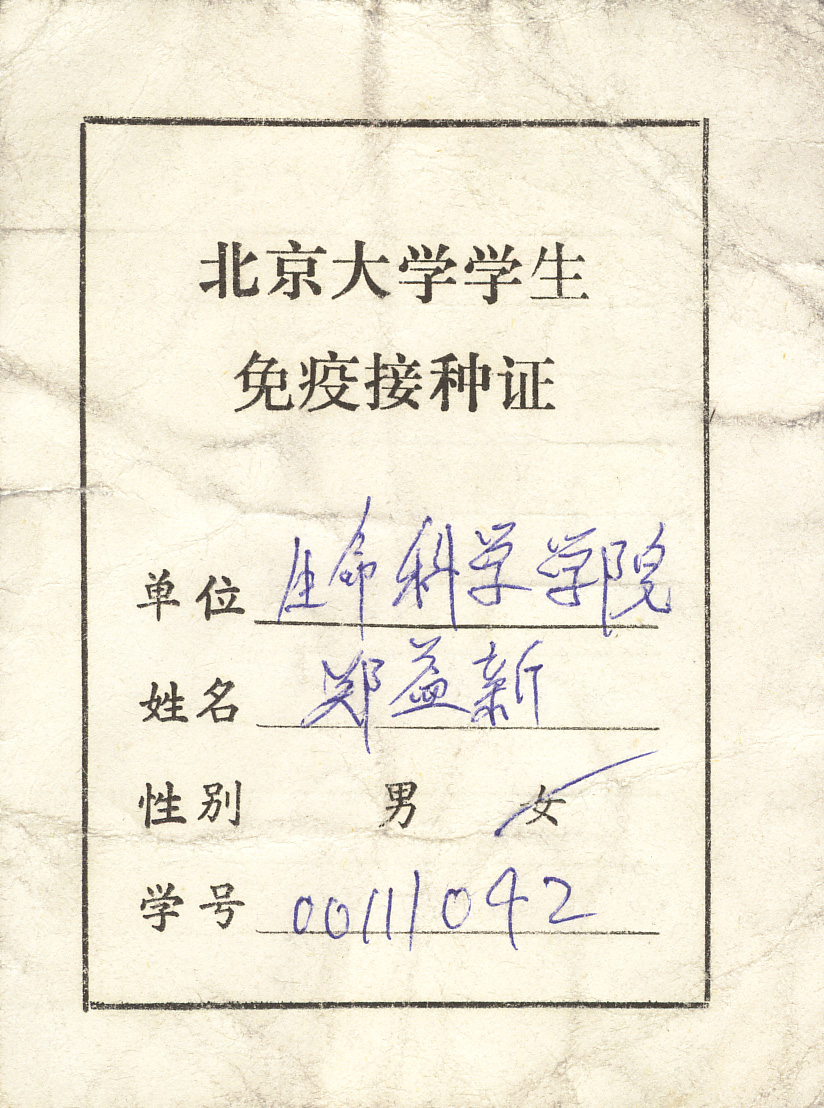 北京大学学生
免疫接种证
单位 生命科学学院
姓名 郑益新
性别 男 女
学号 00111042